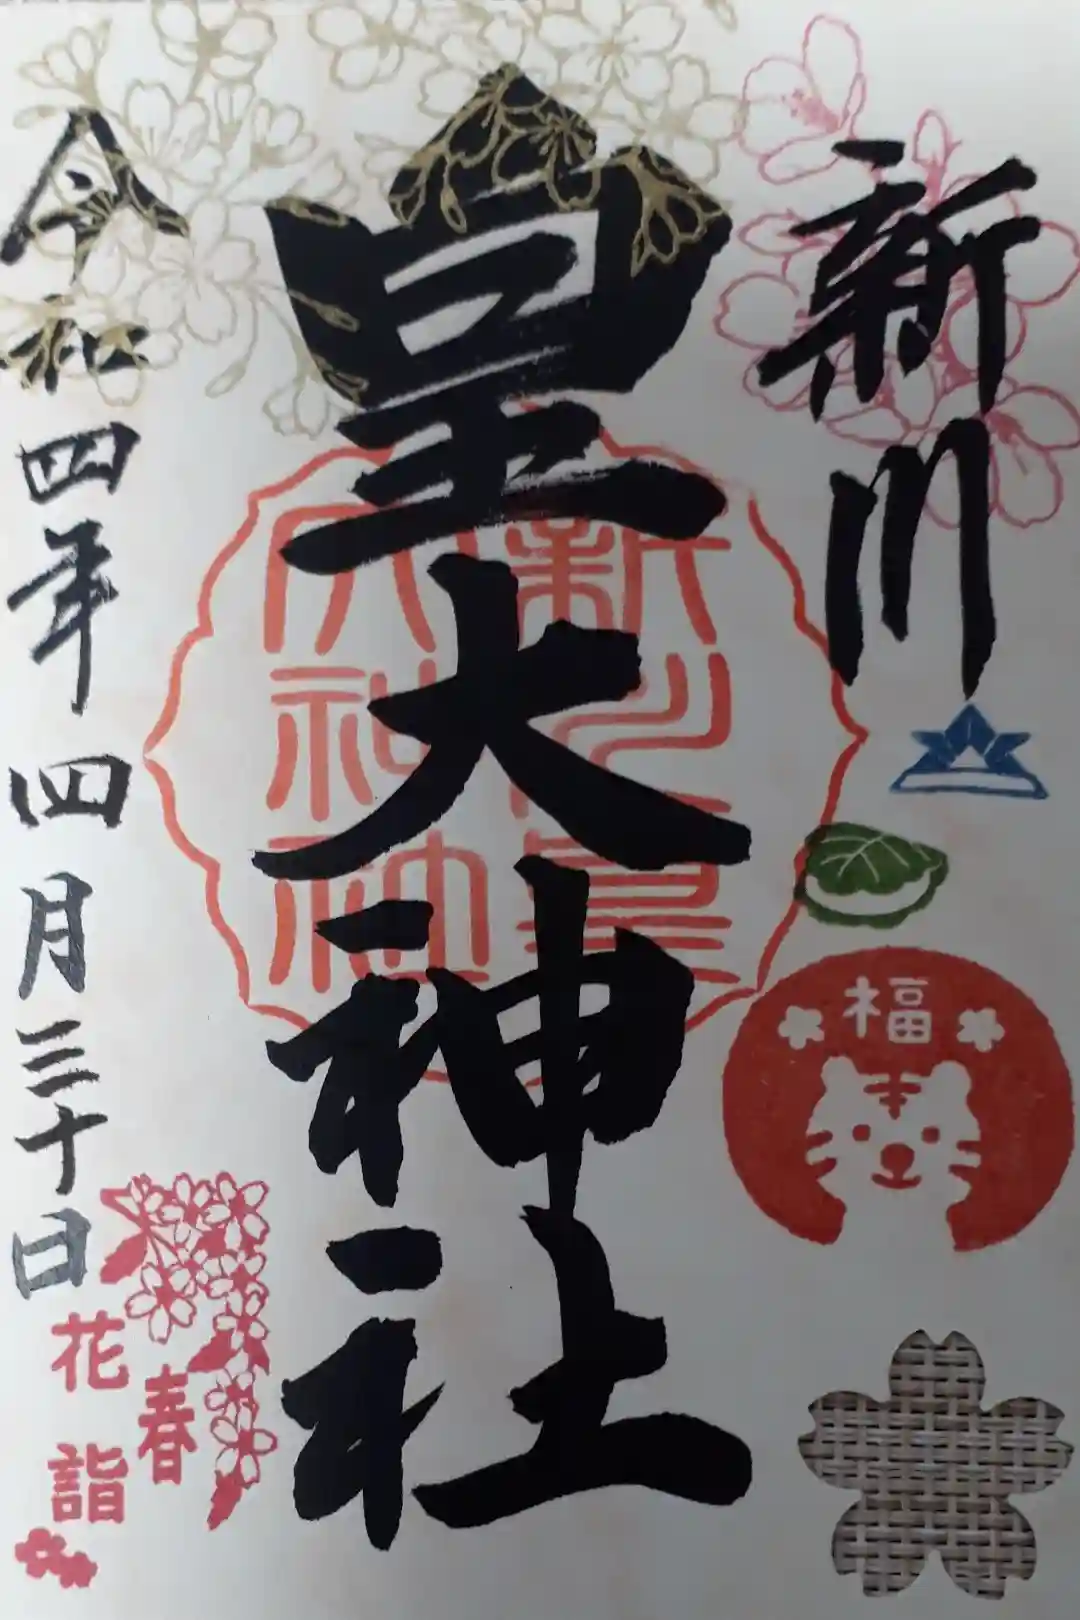 新川
皇大神社
令和四年四月三十日
新川皇
大神社
福
春
花詣